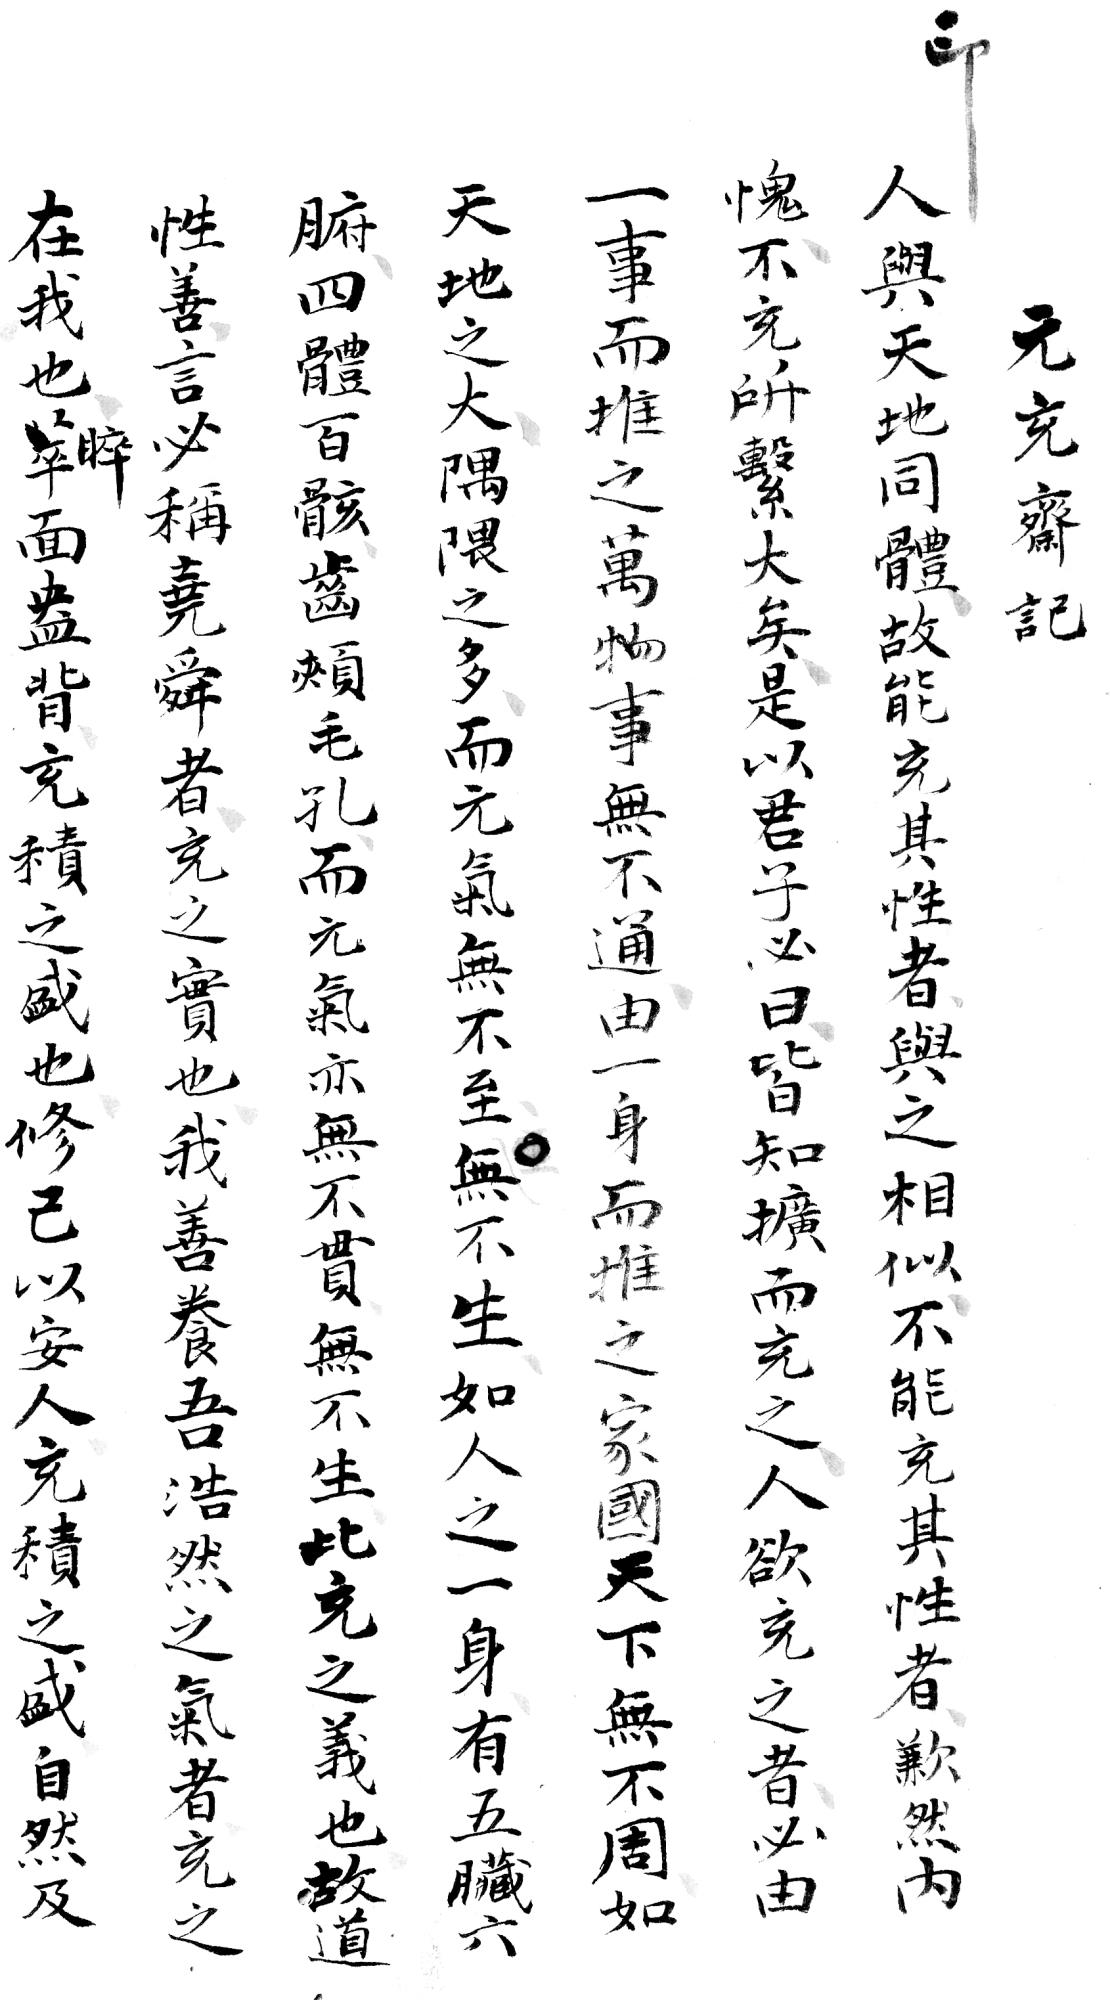 印
元充齋記
人與天地同體故能充其性者與之相似不能充其性者歉然内
愧不充所繫大矣是以君子必曰皆知擴而充之人欲充之者必由
一事而推之萬物事無不通由一身而推之家國天下無不周如
天地之大隅隈之多而元氣無不至無不生如人之一身有五臟六
腑四體百骸齒頰毛孔而元氣亦無不貫無不生此充之義也故道
性善言必稱堯舜者充之實也我善養吾浩然之氣者充之
在我也睟面盎背充積之盛也修己以安人充積之盛自然及